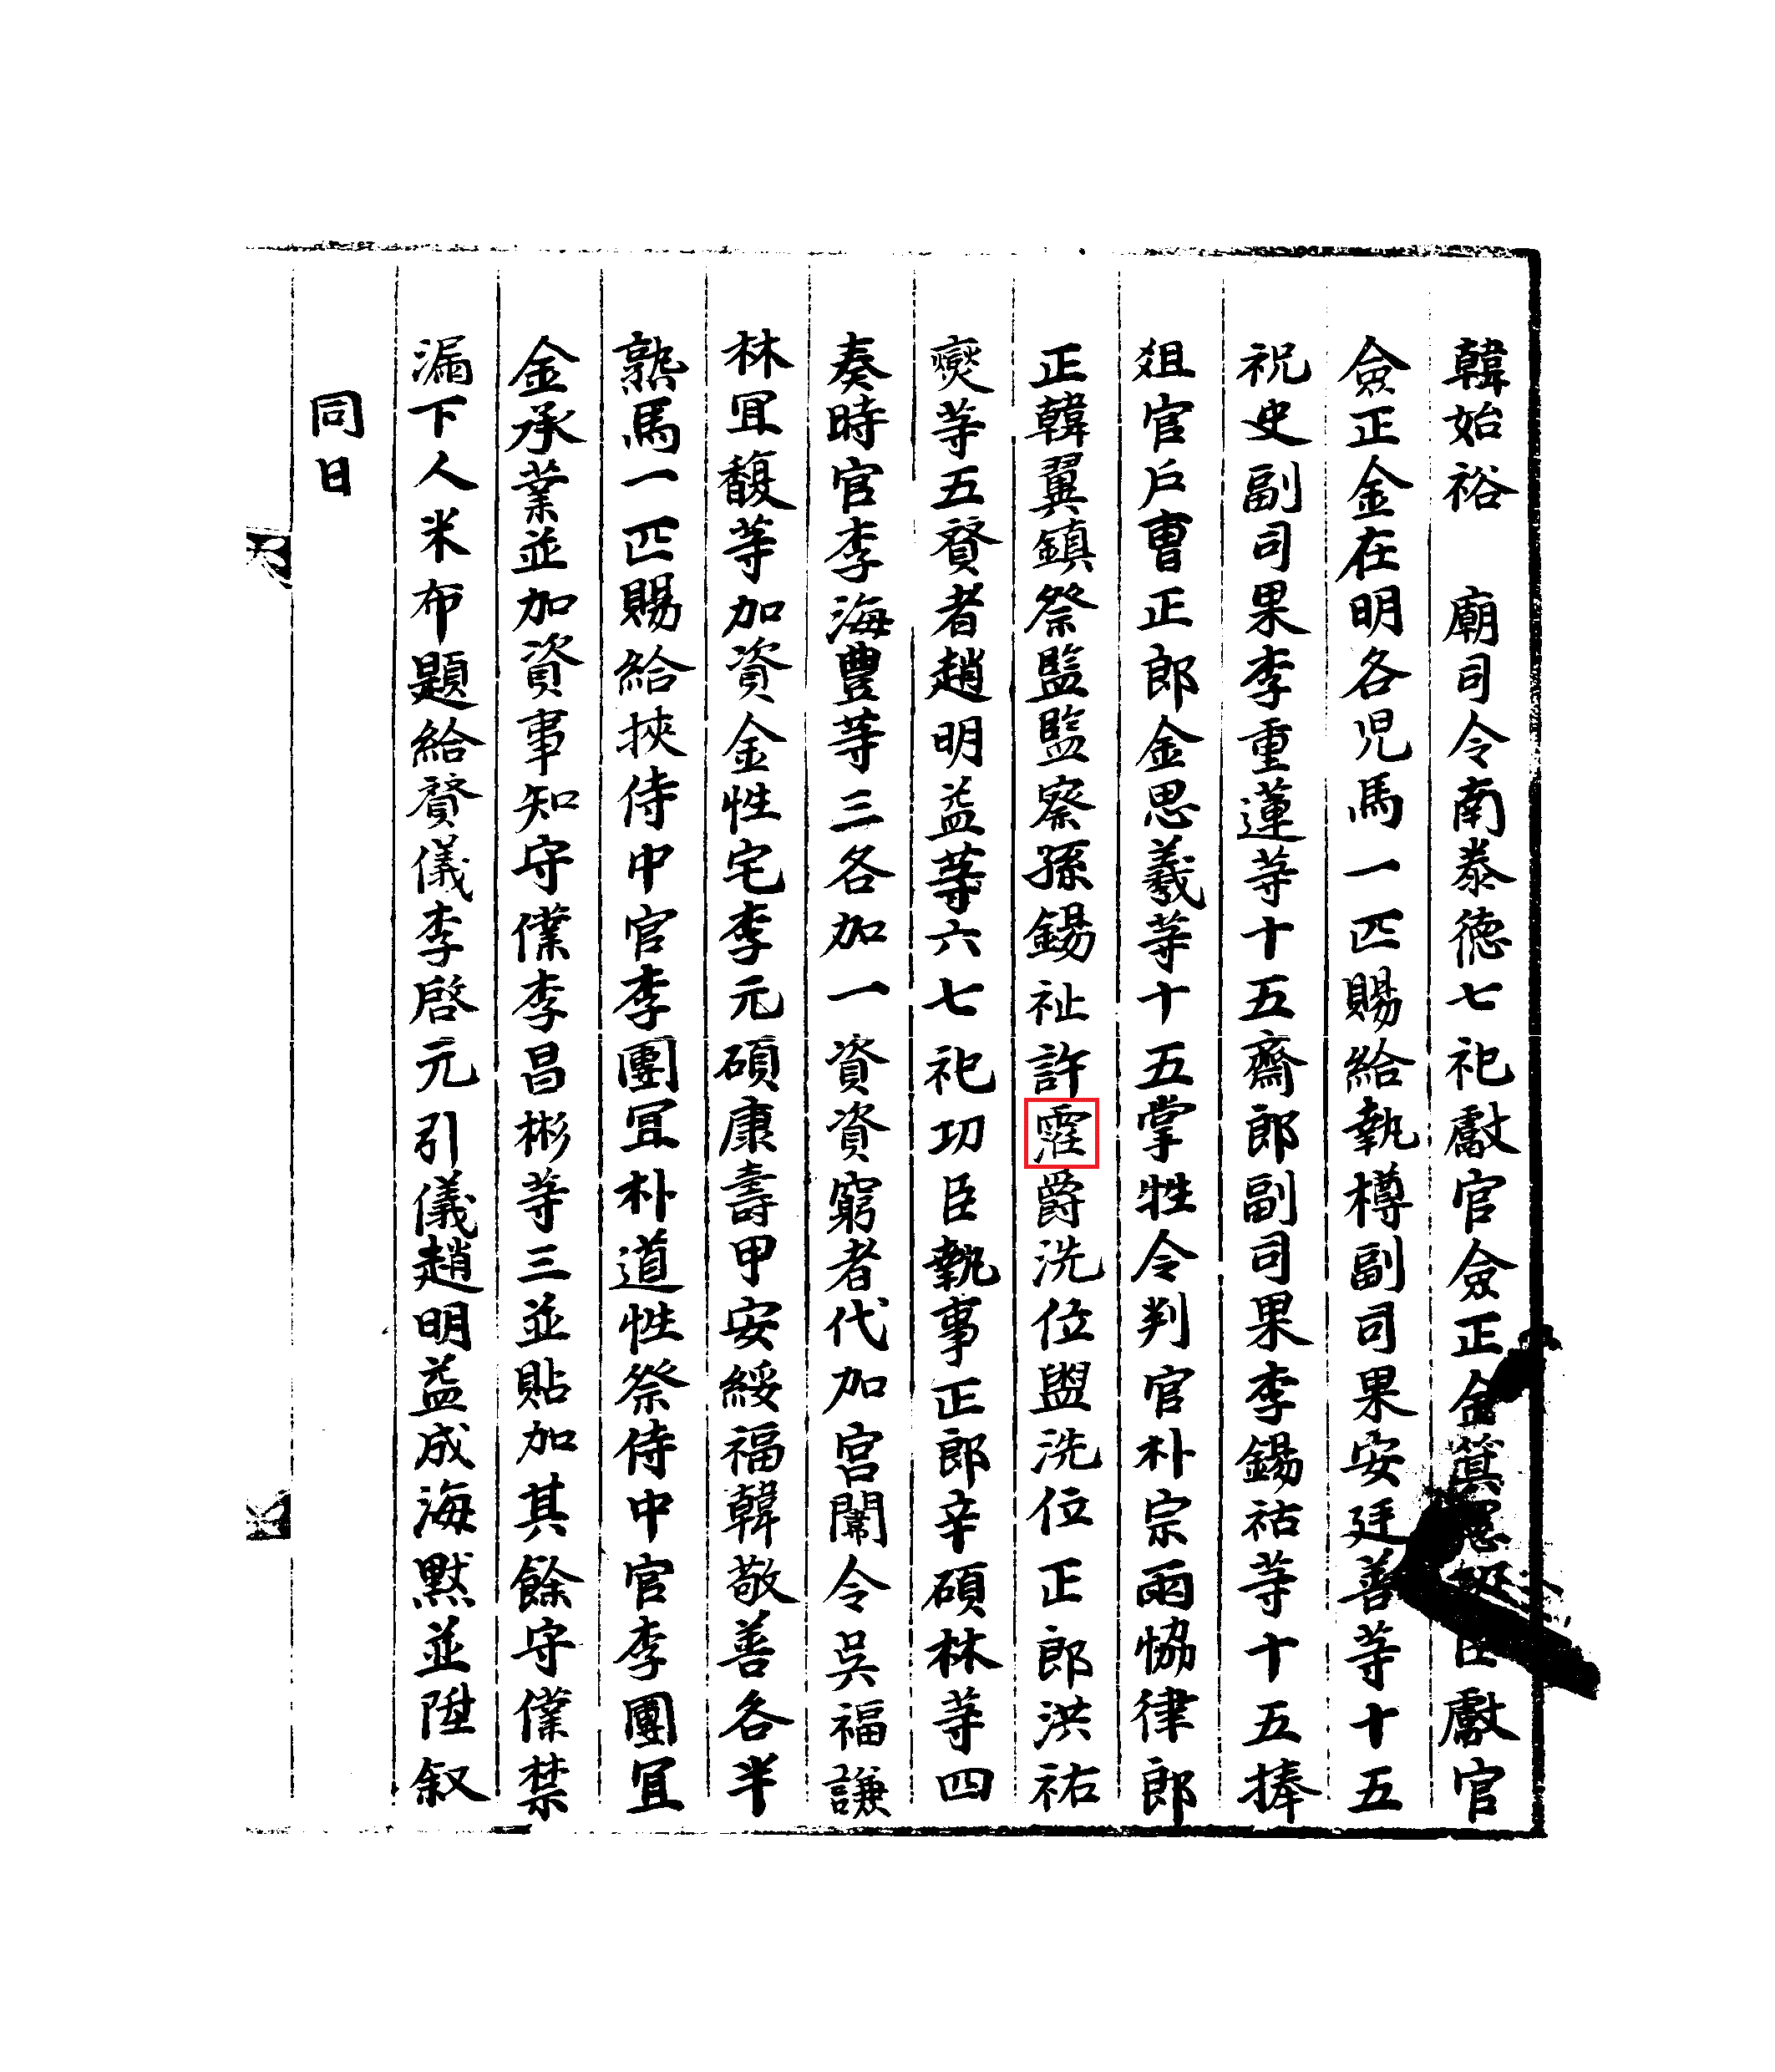 韓始裕 廟司令南泰德七祀獻官僉正金箕臣獻官
僉正金在明各児馬一匹賜給執樽副司果安廷善等十五
祝史副司果李重蓮等十五齋郎副司果李錫祜等十五捧
俎官戶曹正郎金思羲等十五掌牲令判官朴宗雨協律郎
正韓翼鎮祭監監察孫錫祉許霔爵洗位盥洗位正郎洪祐
燮等五贊者趙明益等六七祀功臣執事正郎辛碩林等四
奏時官李海豊等三各加一資資窮者代加宮闈令吳福謙
林冝馥等加資金性宅李元碩康壽甲安綏福韓敬善各半
熟馬一匹賜給挾侍中官李團冝朴道性祭侍中官李團冝
金承業並加資事知守僕李昌彬等三並貼加其餘守僕禁
漏下人米布題給贊儀李啓元引儀趙明益成海默並陞叙
同日